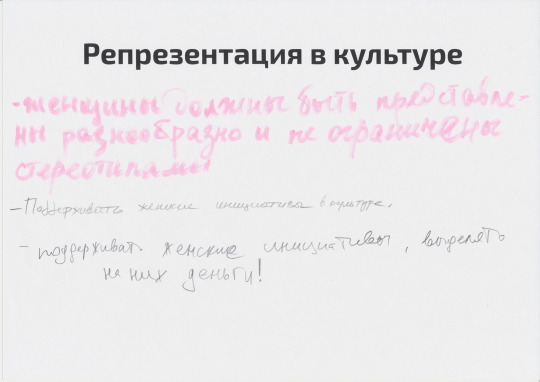 Репрезентация в культуре
-женщины должны быть представле-
ны разнообразно и не ограничены
стереотипами
- Поддерживать женские инициативы в культуре.
- поддерживать женские инициативы, выделять
на них деньги!